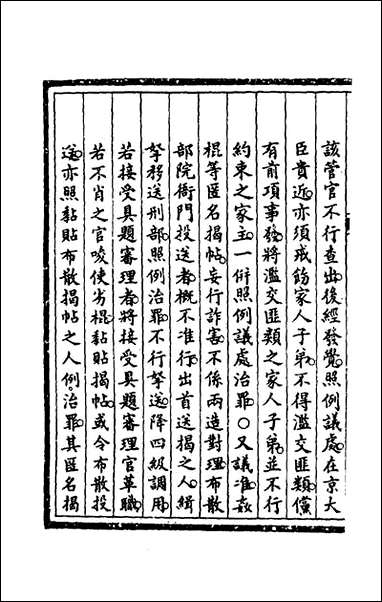 該管官不行查出後經發覺照例議處在京大
臣貴近亦須戒飭家人子弟不得濫交匪類儻
有前項事發將濫交匪類之家人子弟並不行
約束之家主一併照例議處治罪○又議准姦
棍等匿名揭帖妄行詐害不係兩造對理布散
部院衙門投送者概不准行出首送揭之人緝
拏移送刑部照例治罪不行拏送降四級調用
若接受具題審理者將接受具題審理官革職
若不肖之官唆使劣棍黏貼揭帖或令布散投
送亦照黏貼布散揭帖之人例治罪其匿名揭